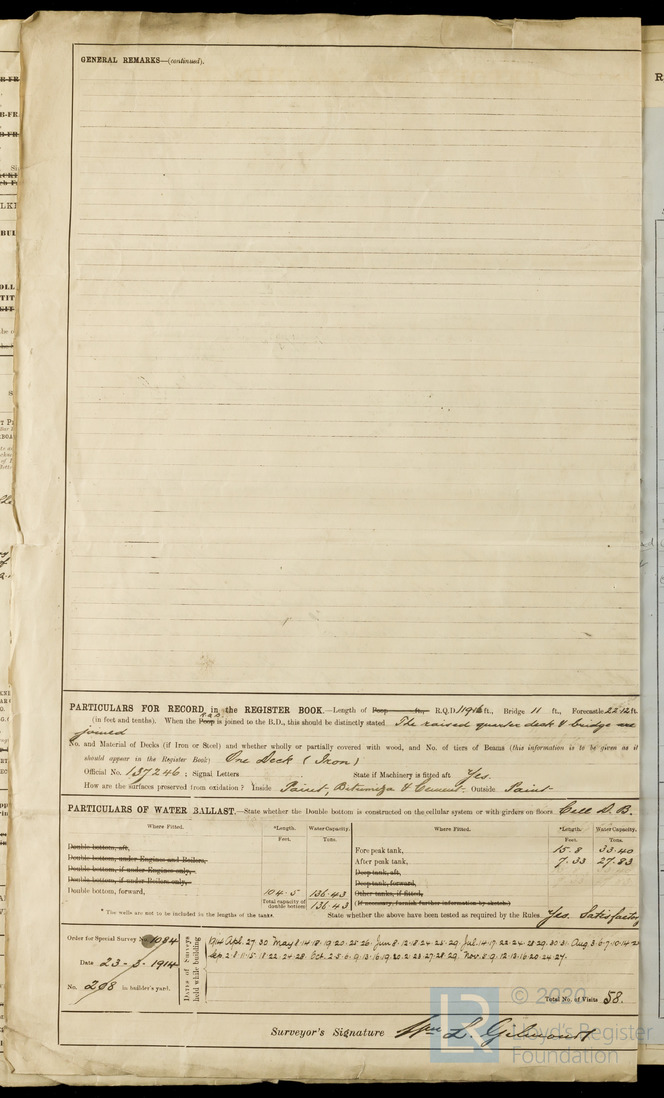 GENERAL REMARKS—(continued).
PARTICULARS FOR RECORD in the REGISTER BOOK.—Length of Poop ft., R.Q.D. ft., Bridge 11 ft., Forecastle 22.12 ft.
R.Q.D.
(in feet and tenths). When the Poop is joined to the B.D., this should be distinctly stated. The raised quarter deck & bridge are
joined
No. and Material of Decks (if Iron or Steel) and whether wholly or partially covered with wood, and No. of tiers of Beams (this information is to be given as it
should appear in the Register Book) One Deck (Iron)
Official No. 137246; Signal Letters State if Machinery is fitted aft Yes.
How are the surfaces preserved from oxidation? Inside Paint, & Cement. Outside Paint
PARTICULARS OF WATER BALLAST.—State whether the Double bottom is constructed on the cellular system or with girders on floors Cell D.B.
Where Fitted. *Length. Water Capacity. Where Fitted. *Length. Water Capacity.
Feet. Tons. Feet. Tons.
Double bottom, aft, Fore peak tank, 15.8 33.40
Double bottom, under Engines and Boilers, After peak tank, 7.33 27.83
Double bottom, if under Engines only, Deep tank, aft,
Double bottom, if under Boilers only, Deep tank, forward,
Double bottom, forward, 104.5 136.43 Other tanks, if fitted,
Total capacity of double bottom 136.43 (If necessary, furnish further information by sketch)
* The wells are not to be included in the lengths of the tanks. State whether the above have been tested as required by the Rules. Yes. Satisfactory
Order for Special Survey No 1084
Date 23-3-1914
No. 268 in builder's yard.
Dates of Surveys held while building
1914 Apl. 27. 30 May 8. 14. 18. 19. 20. 25. 26. Jun 8. 12. 18. 24. 25. 29. Jul. 14. 17. 22. 24. 28. 29. 30. 31. Aug 3. 6. 7. 10. 14.
Sep. 2. 8. 11. 15. 18. 22. 24. 28. Oct. 2. 5. 6. 9. 13. 16. 19. 20. 21. 23. 27. 28. 29. Nov. 8. 9. 12. 13. 16. 20. 24. 27.
Total No. of Visits 58.
Surveyor's Signature Wm L. Gilmour
© 2020
Lloyd's Register
Foundation